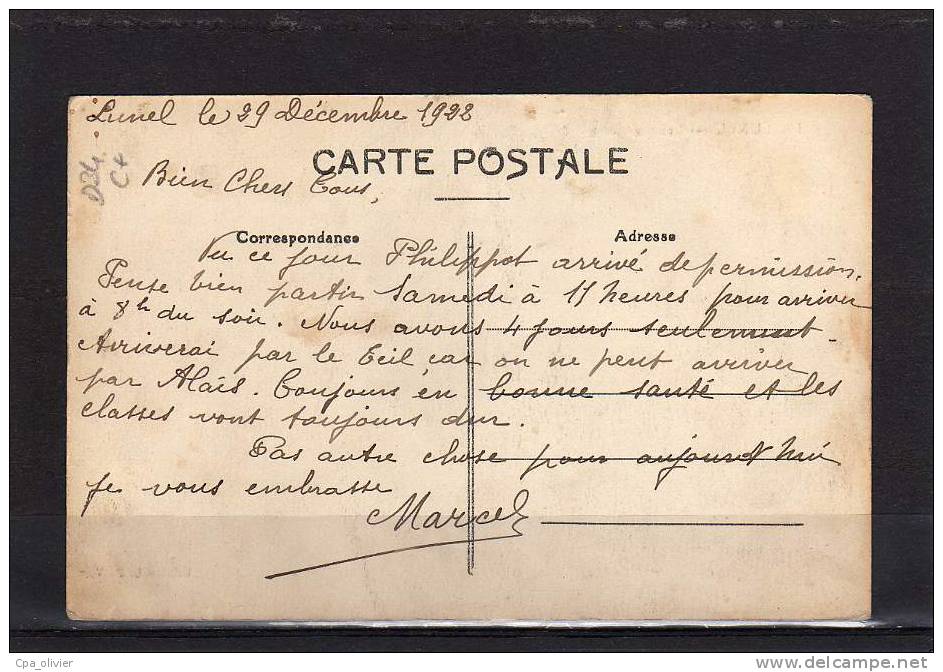 Lunel le 29 Décembre 1922
CARTE POSTALE
D34
C4
Bien Chers Tous,
Correspondance
Adresse
Vu ce jour Philippot arrivé de permission.
Pense bien partir Samedi à 11 heures pour arriver
à 8h du soir. Nous avons 4 jours seulement.
Arriverai par le Teil car on ne peut arriver
par Alais. Toujours en bonne santé et les
classes vont toujours dur.
Pas autre chose pour aujourd'hui
je vous embrasse
Marcel
Cpa_olivier
delcampe.net